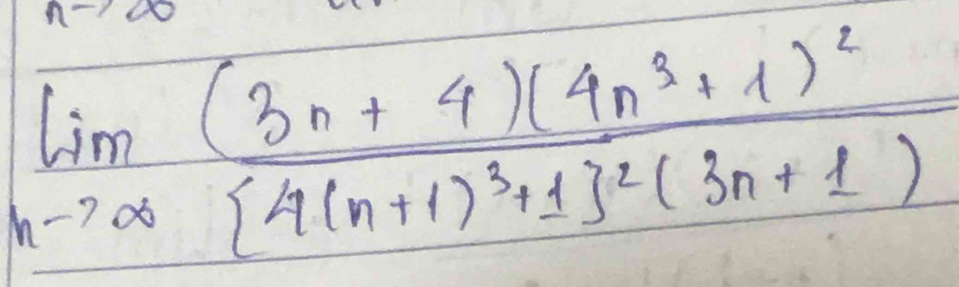 n->∞
lim (3n + 4)(4n³ + 1)²
n->∞ {4(n+1)³+1}²(3n+1)